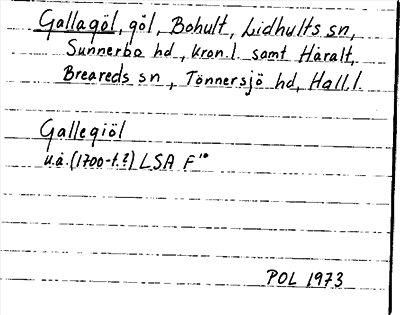 Gallagöl, göl, Bohult, Lidhults sn,
Sunnerbo hd, Kron.l. samt Håralt,
Breareds sn, Tönnersjö hd, Hall.l.
Gallegiöl
u.å. (1700-t.?) LSA F¹⁰
POL 1973